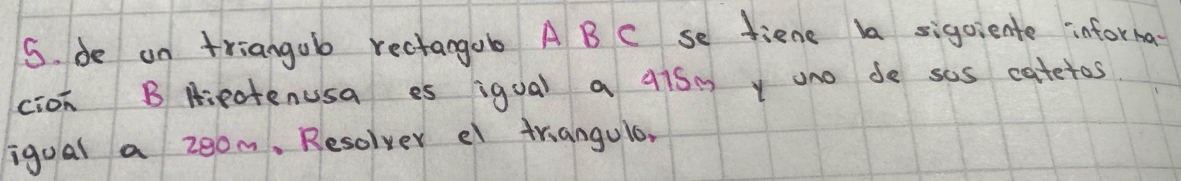 5. de un triangulo rectangulo A B C se tiene la siguiente informa-
cion B Hipotenusa es igual a 415m y uno de sus catetos.
igual a 280m. Resolver el triangulo.